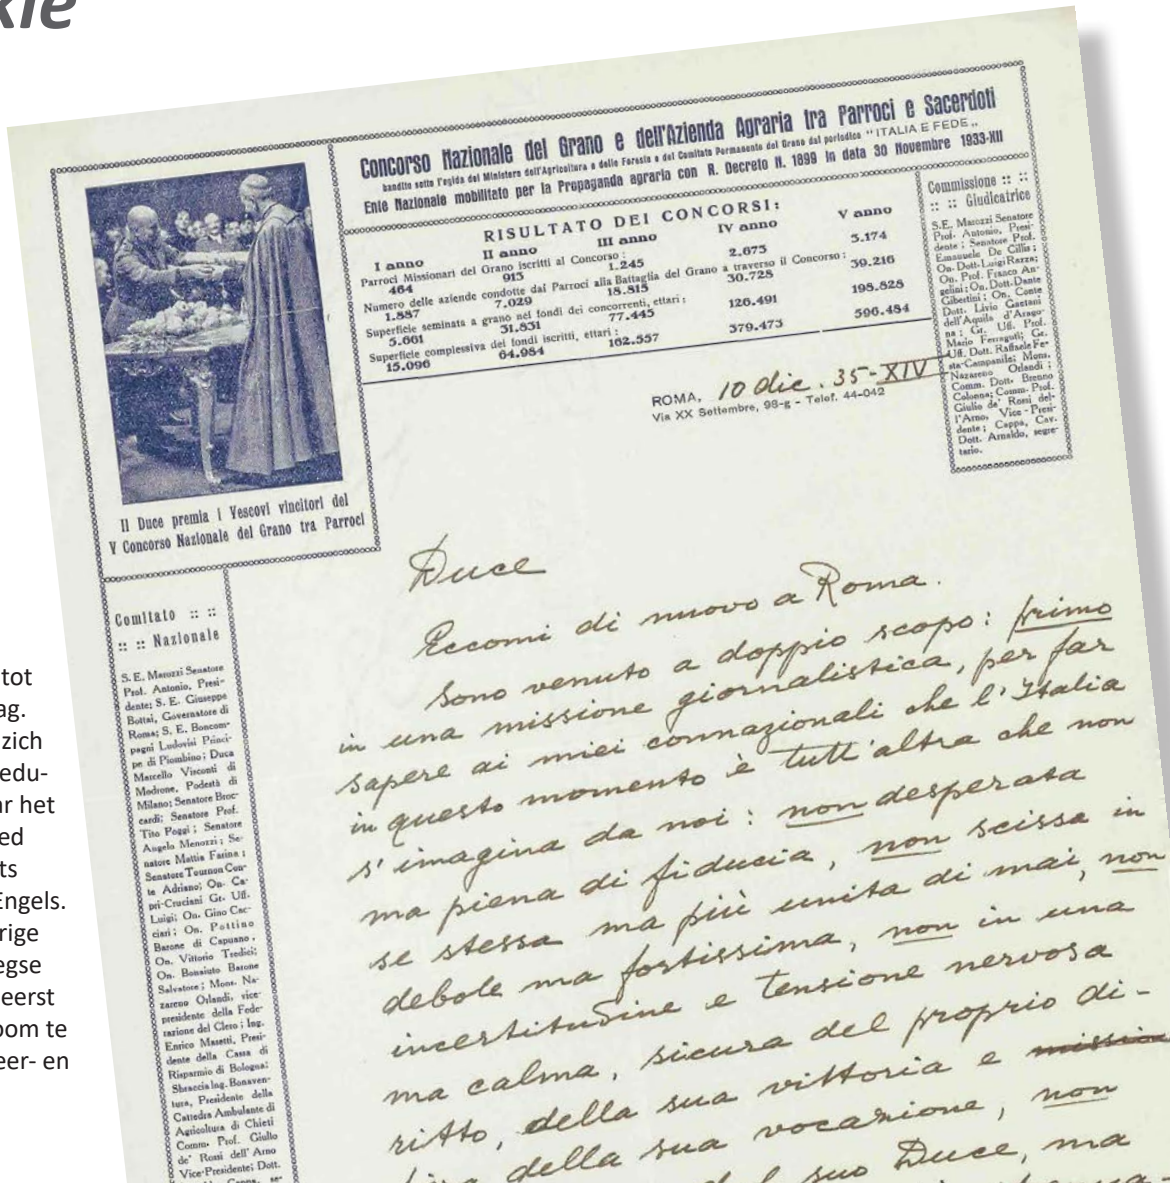 kie
Concorso Nazionale del Grano e dell'Azienda Agraria tra Parroci e Sacerdoti
bandito sotto l'egida del Ministero dell'Agricoltura e delle Foreste e del Comitato Permanente del Grano dal periodico "ITALIA E FEDE"
Ente Nazionale mobilitato per la Propaganda agraria con R. Decreto N. 1899 in data 30 Novembre 1933-XII
RISULTATO DEI CONCORSI:
I anno II anno III anno IV anno V anno
Parroci Missionari del Grano iscritti al Concorso:
464 915 1.245 2.675 5.174
Numero delle aziende condotte dai Parroci alla Battaglia del Grano a traverso il Concorso:
1.887 7.029 18.815 30.728 39.216
Superficie seminata a grano nei fondi dei concorrenti, ettari:
5.661 31.831 77.445 126.491 198.828
Superficie complessiva dei fondi iscritti, ettari:
15.096 64.984 162.557 379.473 596.484
Commissione :: ::
:: :: Giudicatrice
S.E. Marozzi Senatore
Prof. Antonio, Presi-
dente; Senatore Prof.
Emanuele De Cillis;
On. Dott. Luigi Razza;
On. Prof. Franco An-
gelini; On. Dott. Dante
Gibertini; On. Conte
Dott. Livio Gaetani
dell'Aquila d'Arago-
na; Gr. Uff. Prof.
Mario Ferraguti; Gr.
Uff. Dott. Raffaele Fe-
sta-Campanile; Mons.
Nazareno Orlandi;
Comm. Dott. Brenno
Colonna; Comm. Prof.
Giulio de' Rossi del-
l'Arno, Vice-Presi-
dente; Cappa, Cav.
Dott. Arnaldo, segre-
tario.
ROMA, 10 dic. 35-XIV
Via XX Settembre, 98-g - Telef. 44-042
Il Duce premia i Vescovi vincitori del
V Concorso Nazionale del Grano tra Parroci
Comitato :: ::
:: :: Nazionale
S. E. Marozzi Senatore
Prof. Antonio, Presi-
dente; S. E. Giuseppe
Bottai, Governatore di
Roma; S. E. Boncom-
pagni Ludovisi Princi-
pe di Piombino; Duca
Marcello Visconti di
Modrone, Podestà di
Milano; Senatore Broc-
cardi; Senatore Prof.
Tito Poggi; Senatore
Angelo Menozzi; Se-
natore Mattia Farina;
Senatore Tournon Con-
te Adriano; On. Ca-
pri-Cruciani Gr. Uff.
Luigi; On. Gino Cac-
ciari; On. Pottino
Barone di Capuano,
On. Vittorio Tredici;
On. Bonaiuto Barone
Salvatore; Mons. Na-
zareno Orlandi, vice-
presidente della Fede-
razione del Clero; Ing.
Enrico Masetti, Presi-
dente della Cassa di
Risparmio di Bologna;
Sbraccia Ing. Bonaven-
tura, Presidente della
Cattedra Ambulante di
Agricoltura di Chieti
Comm. Prof. Giulio
de' Rossi dell'Arno
Vice-Presidente; Dott.
Cappa, se-
Duce
Eccomi di nuovo a Roma.
Sono venuto a doppio scopo: primo
in una missione giornalistica, per far
sapere ai miei connazionali che l'Italia
in questo momento è tutt'altra che non
s'imagina da noi: non desperata
ma piena di fiducia, non scissa in
se stessa ma più unita di mai, non
debole ma fortissima, non in una
incertitudine e tensione nervosa
ma calma, sicura del proprio di-
ritto, della sua vittoria e mission
della sua vocazione, non
suo Duce, ma
tot
ag.
zich
edu-
ar het
ed
ts
Engels.
rige
egse
eerst
oom te
eer- en